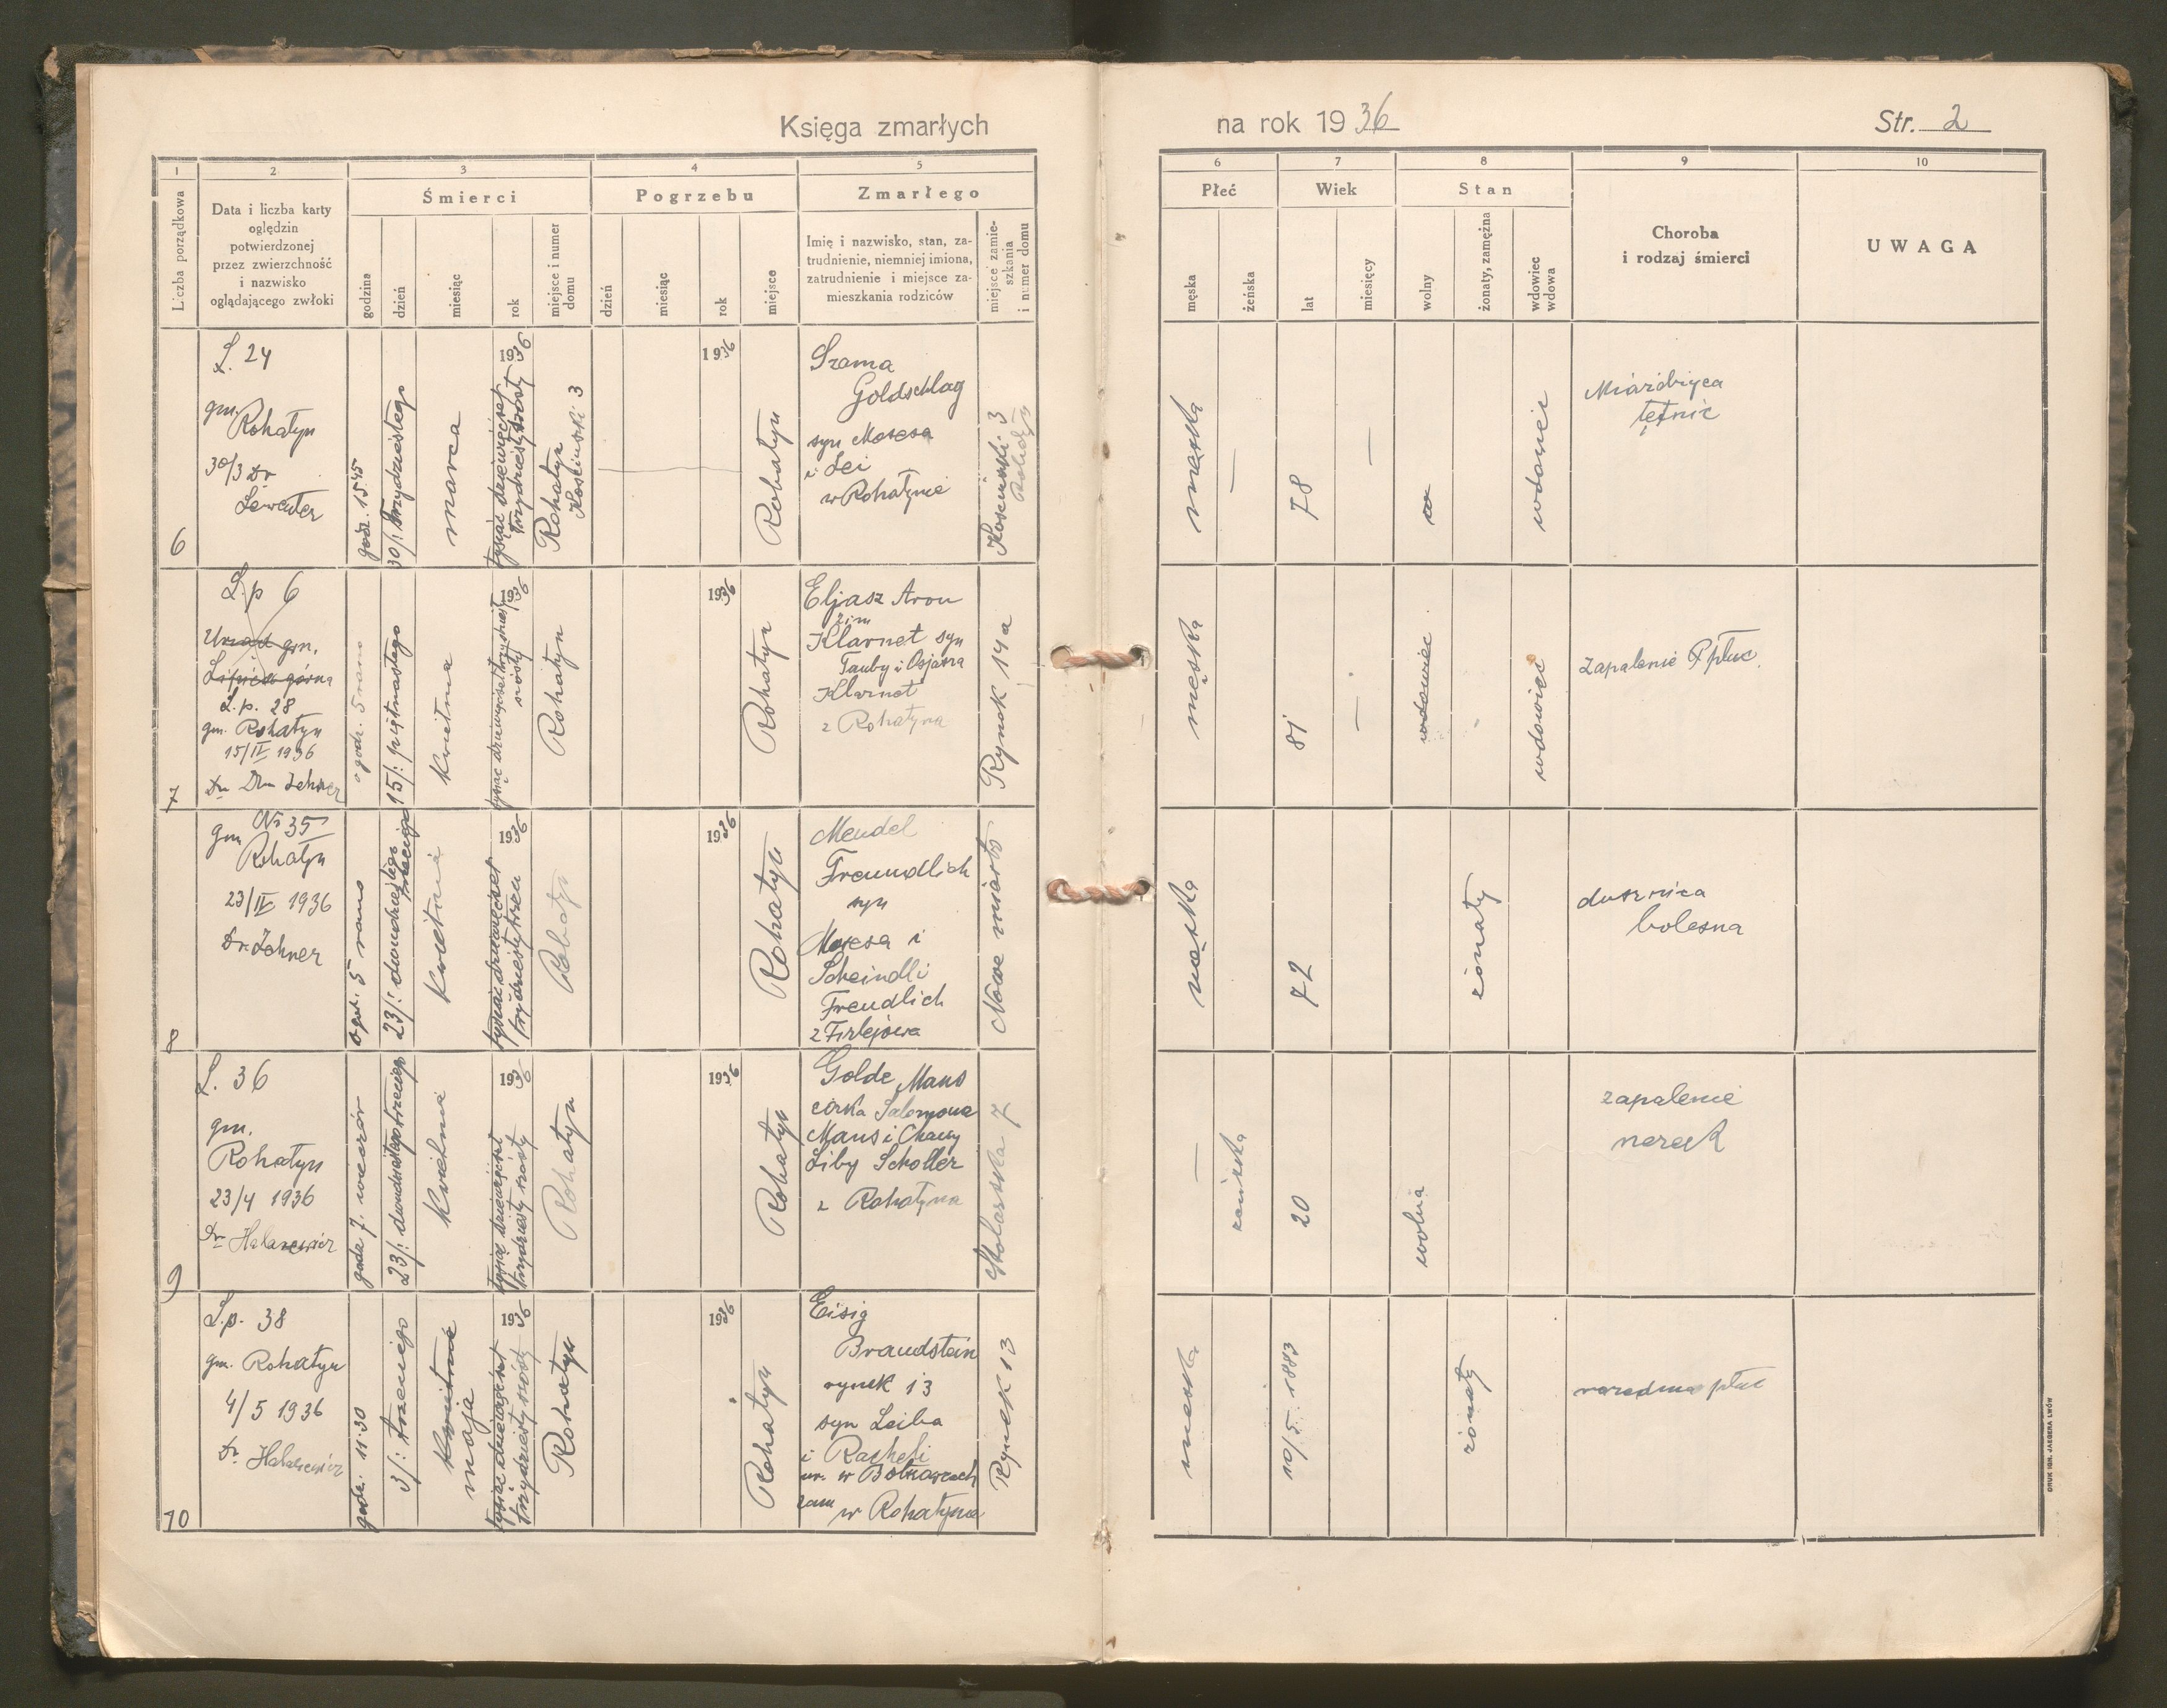 Księga zmarłych
na rok 1936
Str. 2
1
2
3
4
5
6
7
8
9
10
Liczba porządkowa
Data i liczba karty
oględzin
potwierdzonej
przez zwierzchność
i nazwisko
oglądającego zwłoki
Śmierci
godzina
dzień
miesiąc
rok
miejsce i numer
domu
Pogrzebu
dzień
miesiąc
rok
miejsce
Zmarłego
Imię i nazwisko, stan, za-
trudnienie, niemniej imiona,
zatrudnienie i miejsce za-
mieszkania rodziców
miejsce zamie-
szkania
i numer domu
Płeć
męska
żeńska
Wiek
lat
miesięcy
Stan
wolny
żonaty, zamężna
wdowiec
wdowa
Choroba
i rodzaj śmierci
UWAGA
6
L. 24
gm.
Rohatyn
30/3 Dr
Lewenter
godz. 15.45
30/: trzydziestego
marca
1936
tysiąc dziewięćset
trzydziesty szósty
Rohatyn
Kościuszki 3
1936
Rohatyn
Szama
Goldschlag
syn Mosesa
i Lei
w Rohatynie
Kościuszki 3
Rohatyn
męska
—
78
—
wdowiec
Miażdżyca
tętnic
7
L.p 6
Urząd gm.
Lipica górna
L.p. 28
gm. Rohatyn
15/IV 1936
Dr Zehner
o godz. 5 rano
15/: piętnastego
kwietnia
1936
tysiąc dziewięćset trzydziesty
szósty
Rohatyn
1936
Rohatyn
Eljasz Aron
zim
Klarnet syn
Tauby i Osjasza
Klarnet
z Rohatyna
Rynek 14a
męska
81
—
wdowiec
wdowiec
zapalenie płuc
8
Nr 35
gm
Rohatyn
23/IV 1936
Dr. Zehner
o godz. 5 rano
23/: dwudziestego
trzeciego
kwietnia
1936
Rohatyn
1936
Rohatyn
Mendel
Freundlich
syn
Mojesa i
Scheindli
Freudlich
z Firlejowa
Nowe miasto
męska
72
żonaty
dusznica
bolesna
9
L. 36
gm.
Rohatyn
23/4 1936
Dr Halarewicz
godz 7. wieczór
23/: dwudziestego trzeciego
kwietnia
1936
tysiąc dziewięćset
trzydziesty szósty
Rohatyn
1936
Rohatyn
Golde Maus
córka Salomona
Maus i Chawy
Liby Scholler
z Rohatyna
Stolarska 7
—
żeńska
20
wolna
zapalenie
nerek
10
L.p. 38
gm. Rohatyn
4/5 1936
Dr Halarewicz
godz. 11.30
3/: trzeciego
kwietnia
maja
1936
tysiąc dziewięćset
trzydziesty szósty
Rohatyn
1936
Rohatyn
Eisig
Brandstein
rynek 13
syn Leiba
i Racheli
ur. w
zam
w Rohatynie
Rynek 13
męska
10/5. 1883
żonaty
rozedma płuc
DRUK IGN. JAEGERA LWÓW